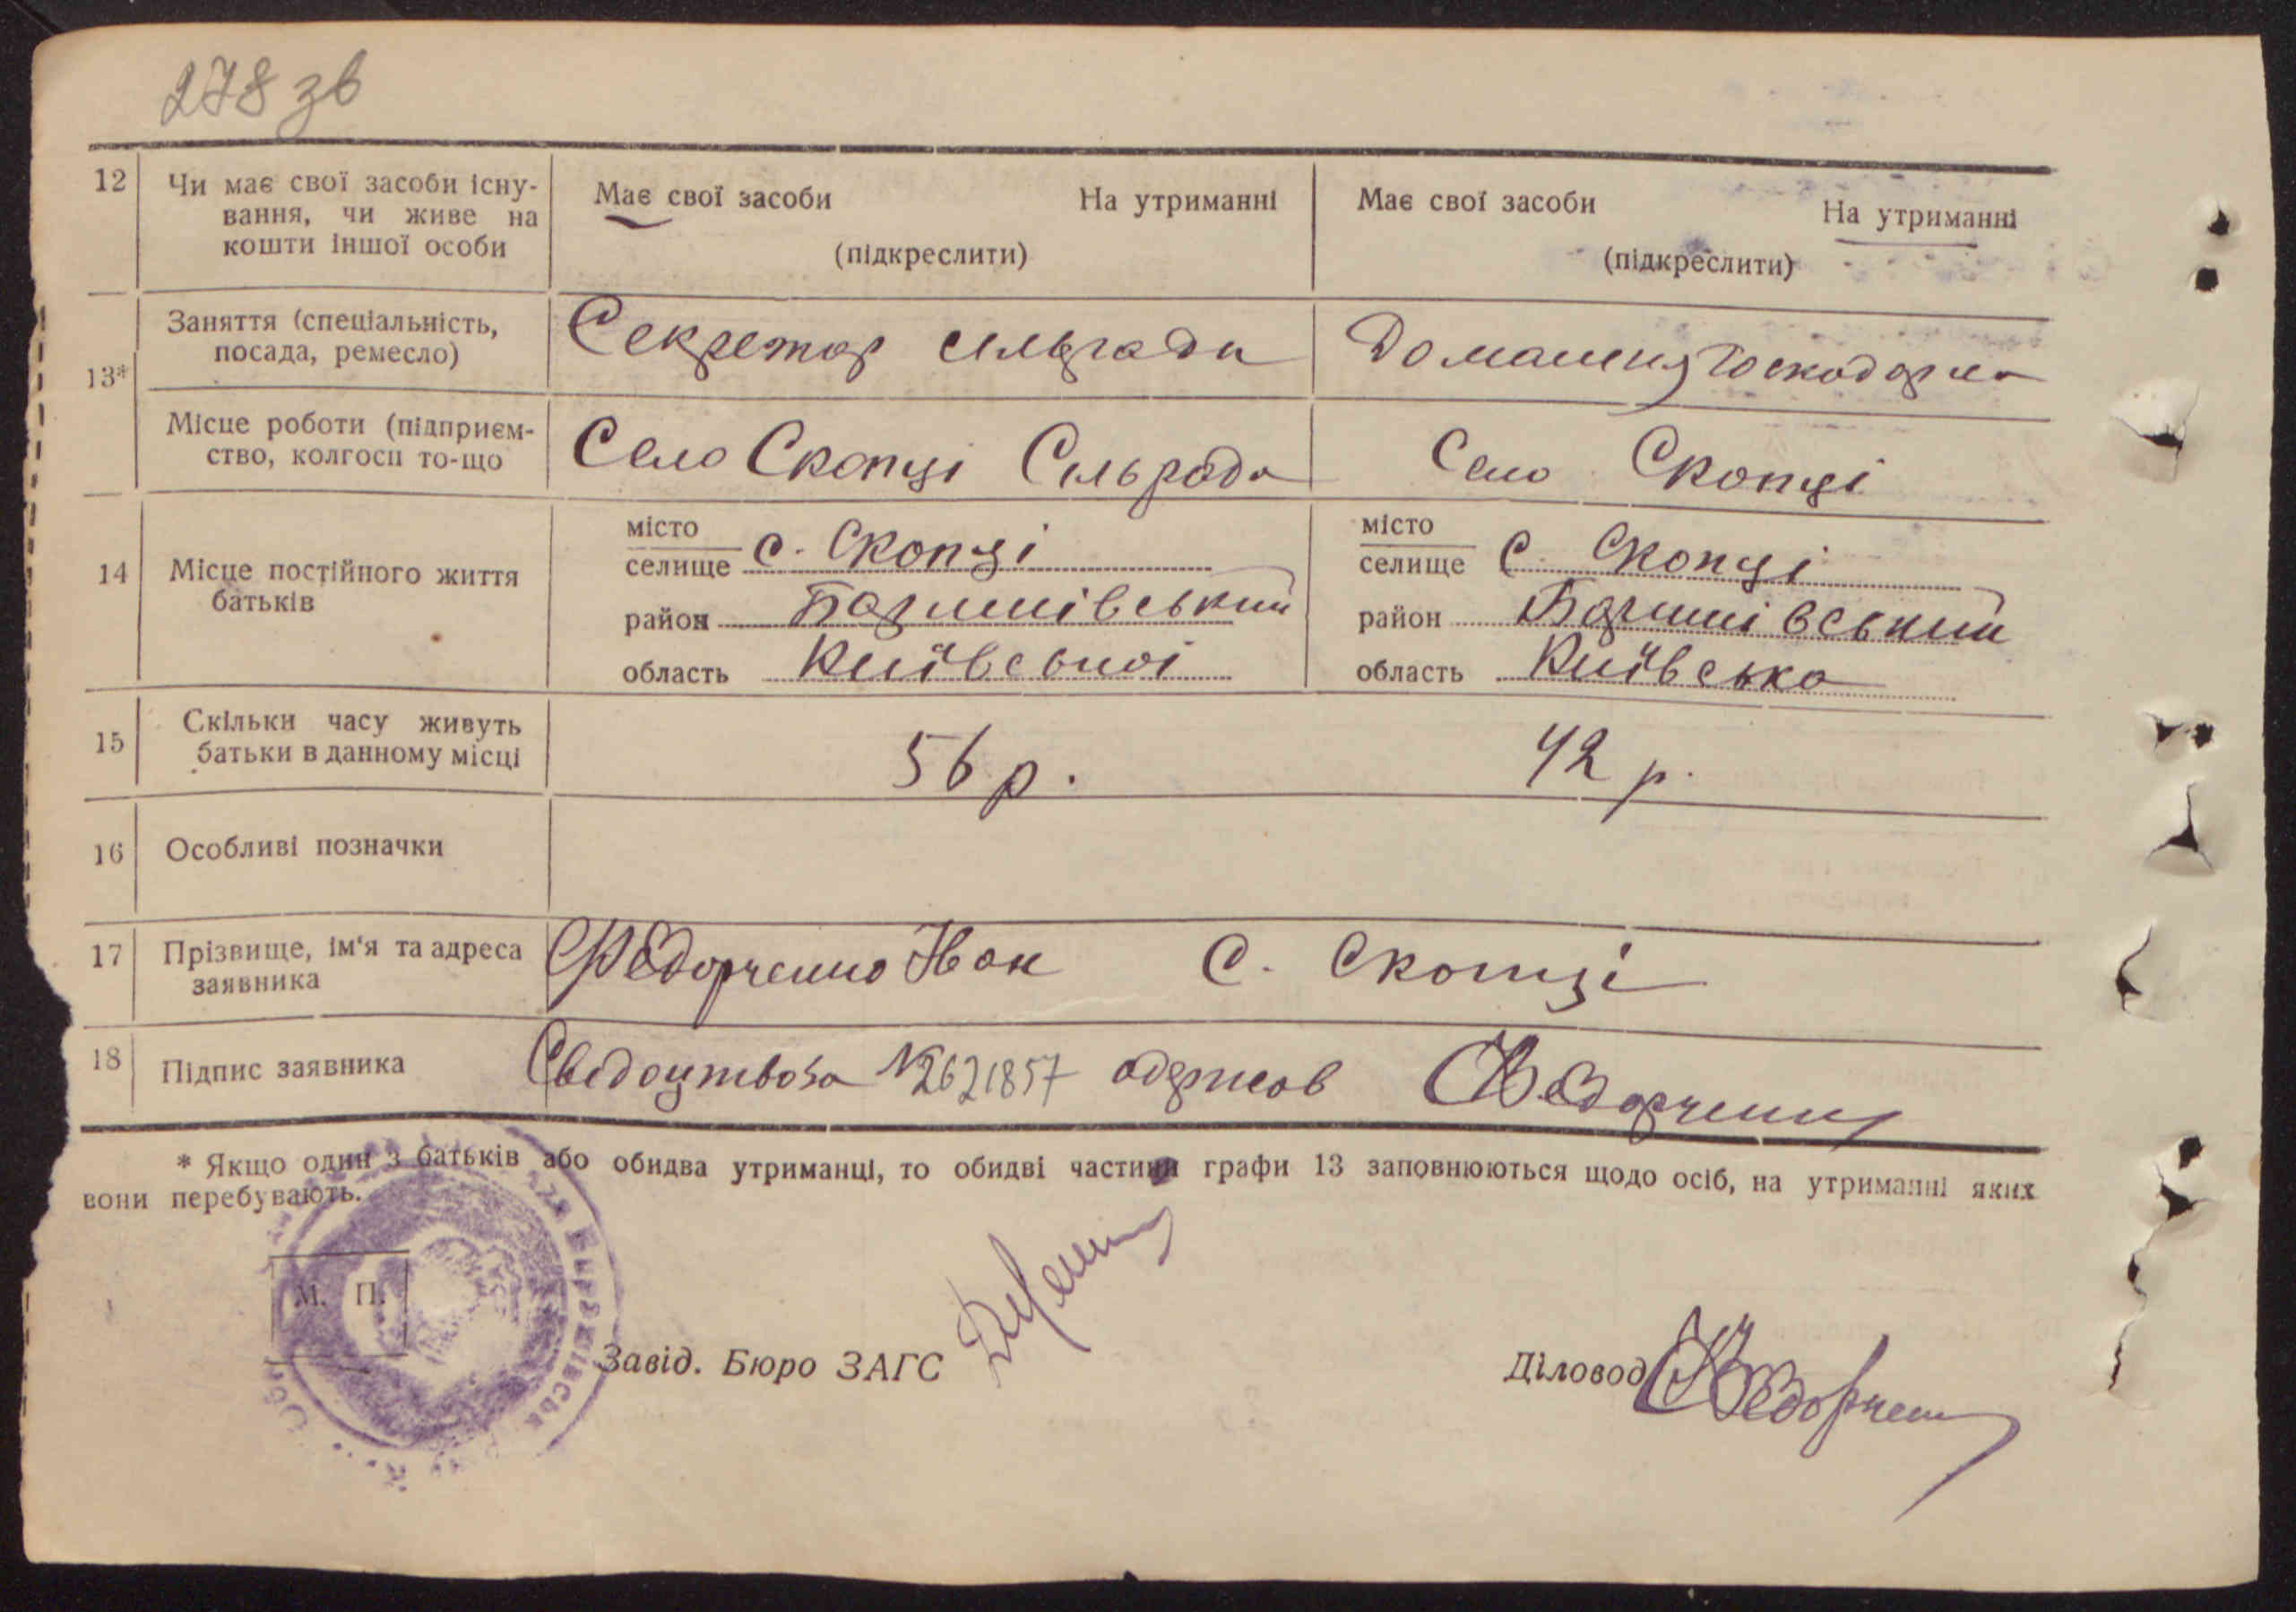 278 зв
12 Чи має свої засоби існу- Має свої засоби На утриманні Має свої засоби На утриманні
вання, чи живе на
кошти іншої особи (підкреслити) (підкреслити)
13* Заняття (спеціальність, Секретар сільради Домашня Господарка
посада, ремесло)
Місце роботи (підприєм- Село Скопці Сільрада Село Скопці
ство, колгосп то-що
14 Місце постійного життя батьків
місто
селище с. Скопці
район Баришівський
область Київської
місто
селище С. Скопці
район Баришівський
область Київська
15 Скільки часу живуть 56 р. 42 р.
батьки в данному місці
16 Особливі позначки
17 Прізвище, ім'я та адреса Федорченко Іван С. Скопці
заявника
18 Підпис заявника Свідоцтво за № 2621857 одержав Федорченко
* Якщо один з батьків або обидва утриманці, то обидві частини графи 13 заповнюються щодо осіб, на утриманні яких
вони перебувають.
М. П.
Завід. Бюро ЗАГС
Діловод Федорченко